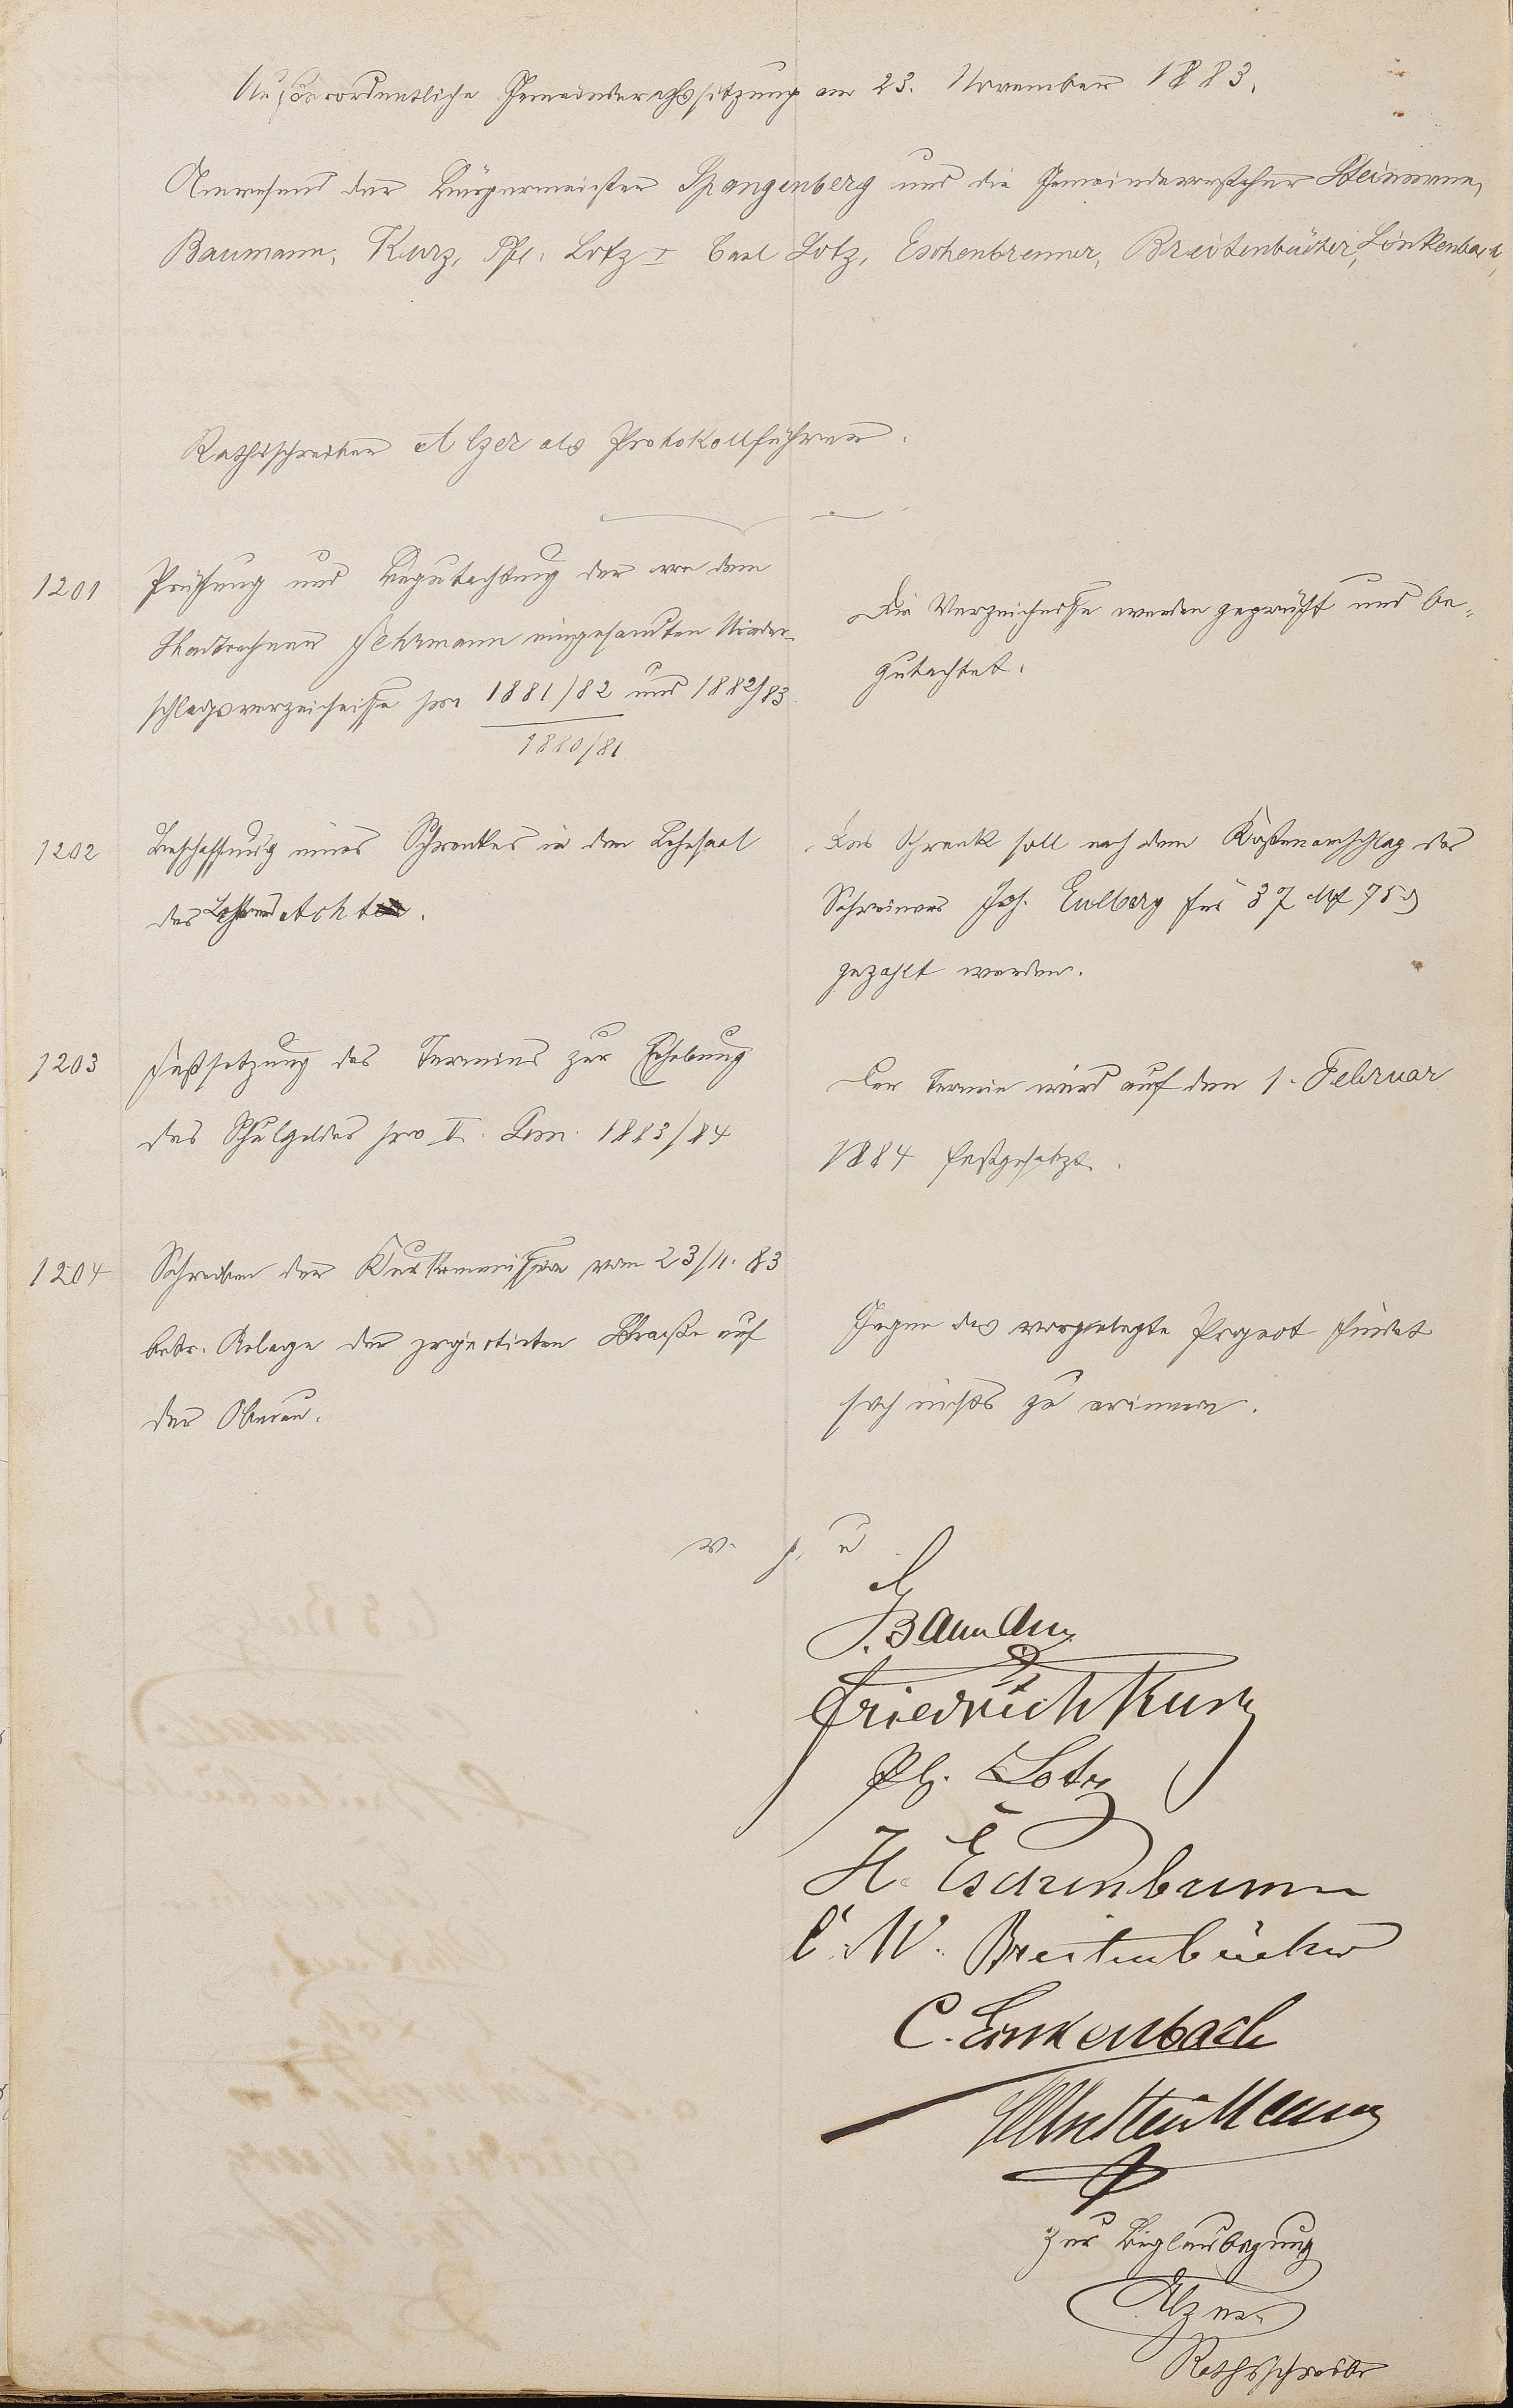 Außerordentliche Gemeinderathssitzung am 23. November 1883.
Anwesend der Bürgermeister Spangenberg und die Gemeindevorsteher Steinmann,
Baumann, Kurz, Ph. Lotz I Carl Lotz, Eschenbrenner, Breitenbücher, Linkenbach,
Rathsschreiber Alzer als Protokollführer.
1201
Prüfung und Begutachtung der von dem
Stadtrechner Fehrmann eingesandten Nieder-
schlagsverzeichnisse pro 1881/82 und 1882/83.
1880/81
Die Verzeichnisse werden geprüft und be-
gutachtet.
1202
Beschaffung eines Schrankes in den Lehrsaal
des Lehrers Acht.
Das Schrank soll nach dem Kostenanschlag des
Schreiners Joh. Eulberg für 37 M 75 ₰
gezahlt werden.
1203
Festsetzung des Termins zur Erhebung
des Schulgeldes pro II. Sem. 1883/84
Der Termin wird auf den 1. Februar
1884 festgesetzt.
1204
Schreiben der Kurkommission vom 23/11. 83
betr. Anlage der projectirten Straße auf
der Oberau.
Gegen das vorgelegte Project findet
sich nichts zu erinnern.
v. g. u.
J. Baumann
Friedrich Kurz
Ph. Lotz
H. Eschenbrenner
C. W. Breitenbücher
C. Linkenbach
Steinmann
Zur Beglaubigung
Alzer
Rathsschreiber